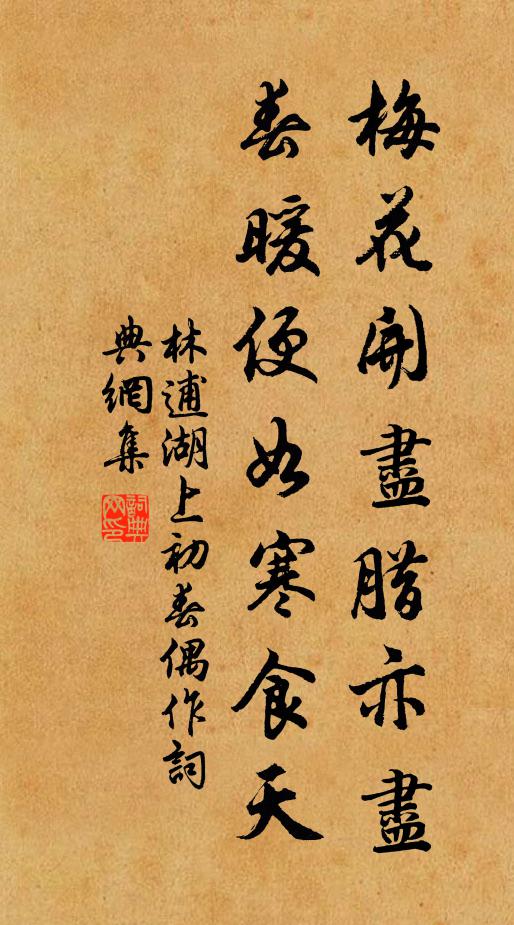 梅花開盡腊亦盡
春暖便如寒食天
林逋湖上初春偶作詞
典網集
詞典
网印